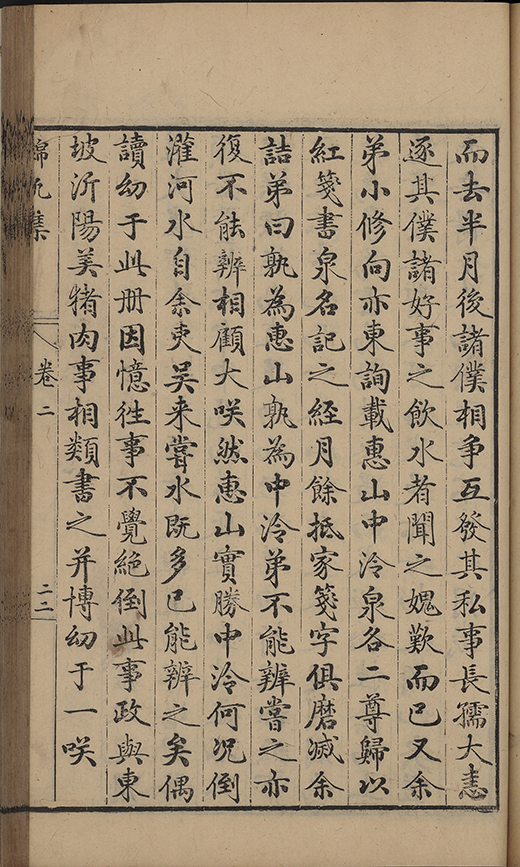 而去半月後諸僕相爭互發其私事長孺大恚
逐其僕諸好事之飲水者聞之媿歎而已又余
弟小修向亦東詢載惠山中泠泉各二尊歸以
紅箋書泉名記之經月餘抵家箋字俱磨滅余
詰弟曰孰為惠山孰為中泠弟不能辨嘗之亦
復不能辨相顧大咲然惠山實勝中泠何况倒
灌河水自余吏吳来嘗水既多已能辨之矣偶
讀幼于此册因憶徃事不覺絕倒此事政與東
坡沂陽美猪肉事相類書之并博幼于一咲
錦帆集
卷二
二二